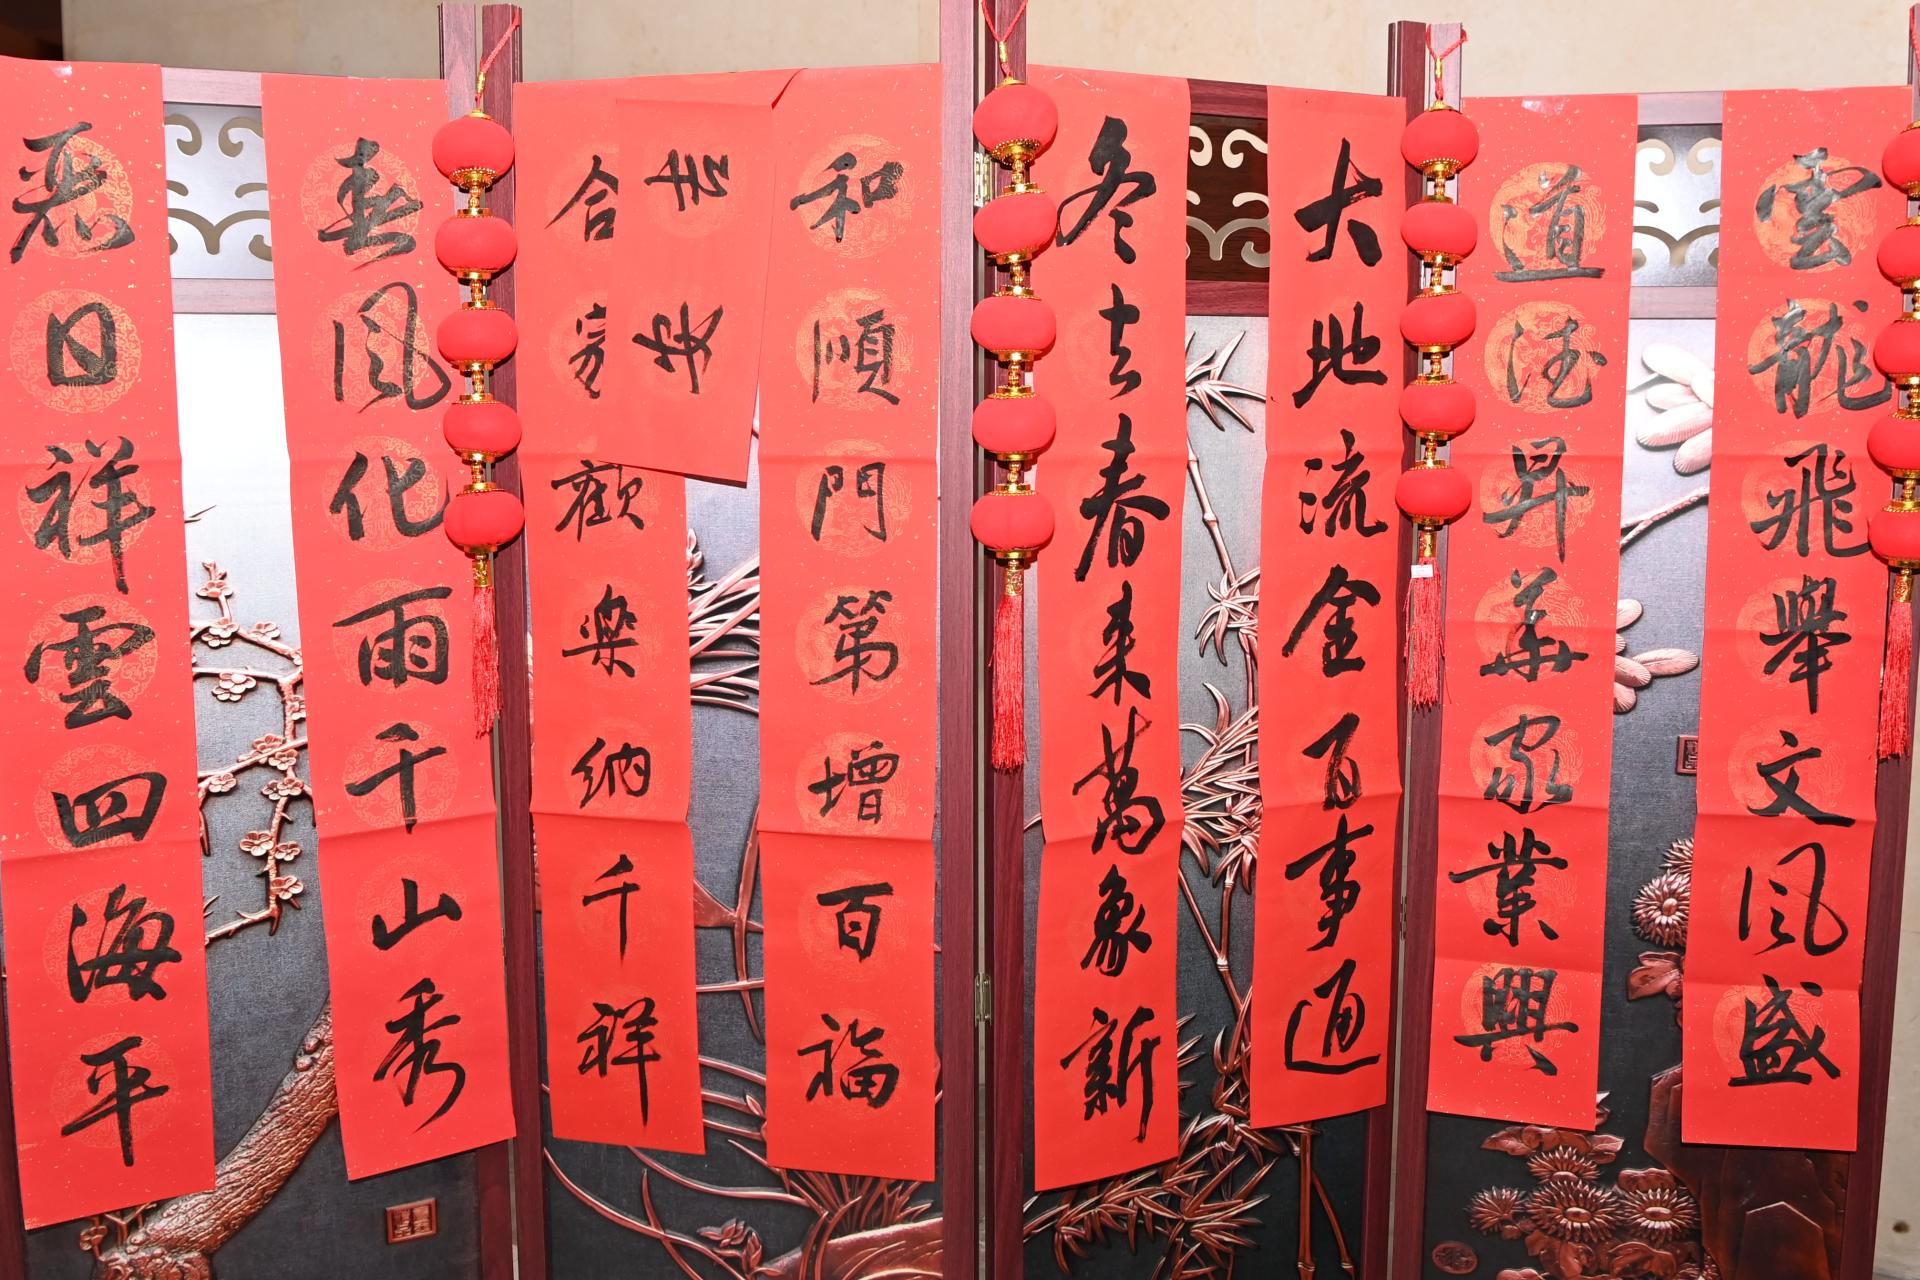 雲龍飛舉文風盛
道德昇華家業興
大地流金百事通
冬去春来萬象新
和順門第增百福
合家歡楽納千祥
春風化雨千山秀
麗日祥雲四海平